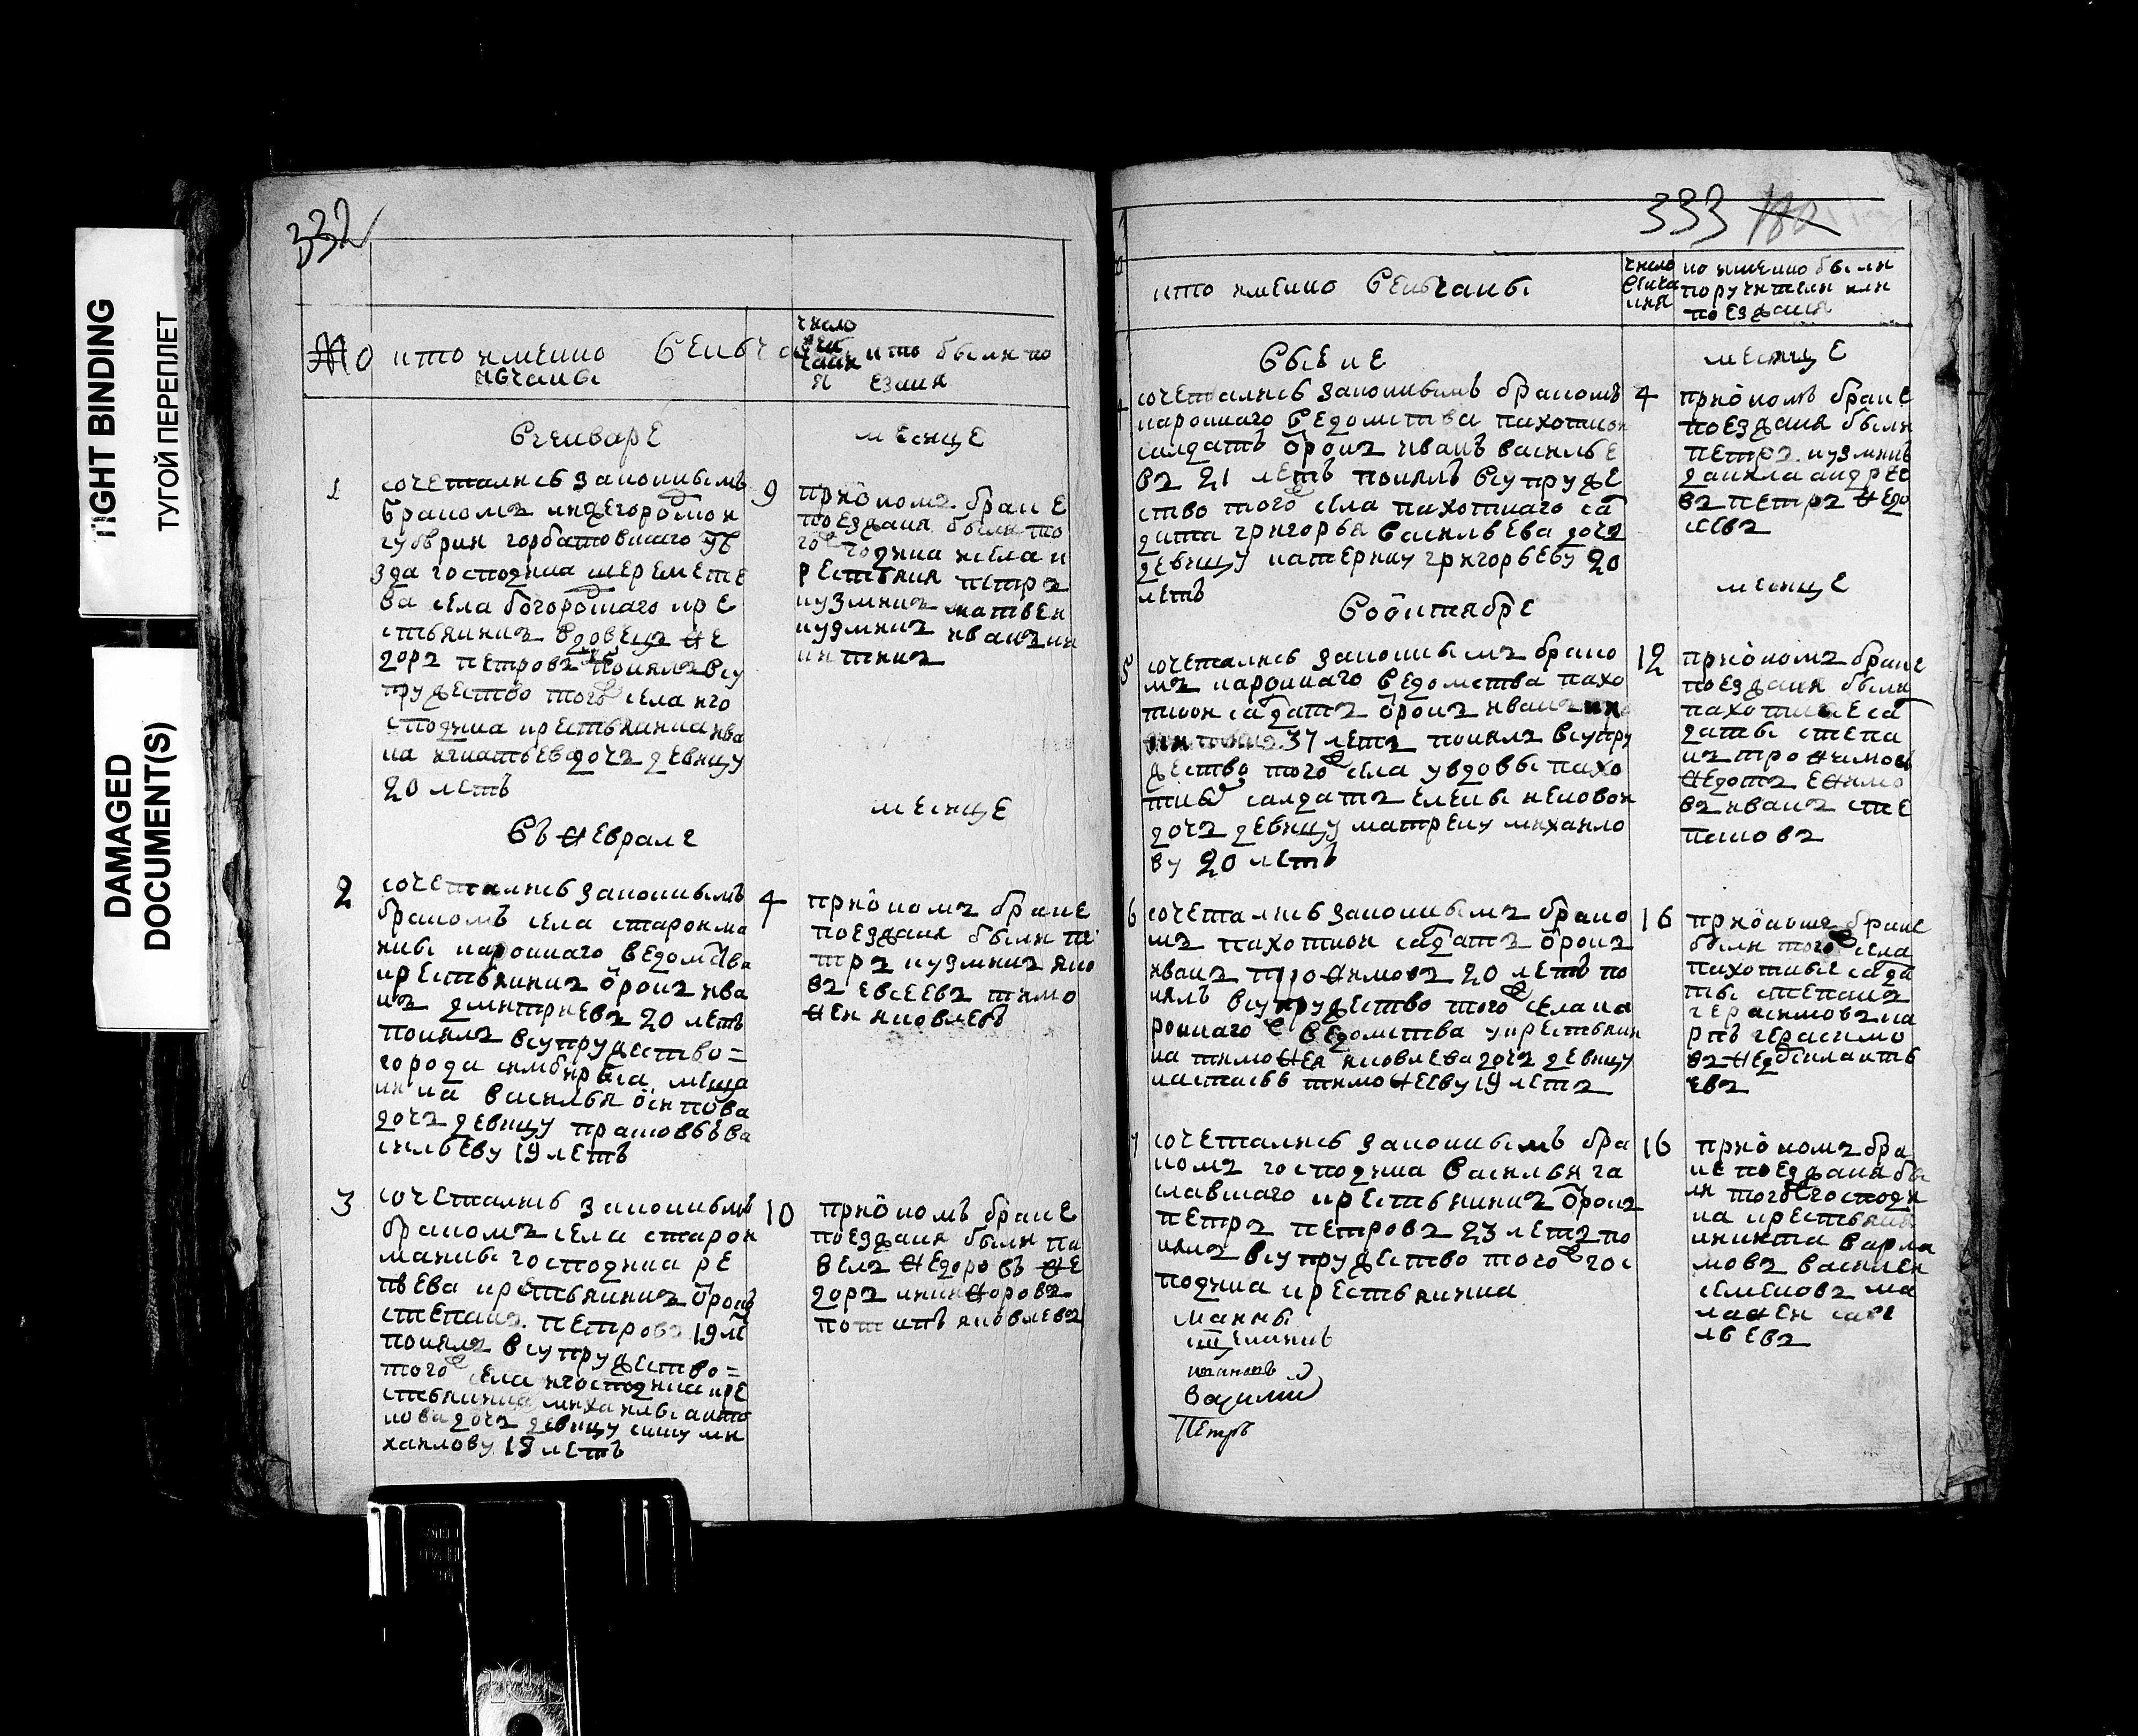 TIGHT BINDING
ТУГОЙ ПЕРЕПЛЕТ
DAMAGED
DOCUMENT(S)
332
кто имянно венча
числο
кто были по
езжия
Вгенваре
месяце
1
сочетались законнымъ
бракомъ нижегородкои
губернии горбатовскаго уѣ
зда господина шеремете
ва села богороцкаго кре
стьянинъ вдовецъ ѳе
доръ петровъ понялъ всу
пружество того села иго
сподина крестьянина ива
на игнатьева дочь девицу
20 летъ
9
приономъ браке
поезжаня были то
го господина исела к
рестьяня петръ
кузминъ матвеи
кузминъ иванъ ни
китинъ
Въ ѳеврале
месяце
2
сочетались законнымъ
бракомъ села староима
ины каронного ведомства
крестьянинъ орокъ ива
нъ дмитриевъ 20 летъ
понялъ всупружество=
города синбирска меща
нина василья осипова
дочь девицу прасковью ва
сильеву 19 летъ
4
приономъ браке
поезжаня были пе
тръ кузминъ яко
въ евсеевъ тимо
ѳеи яковлевъ
3
сочетались законнымъ
бракомъ села старои
маины господина ре
пьева крестьянинъ орокъ
степанъ петровъ 19 ле
понялъ всупружество=
того села игосподина кре
стьянина михаилы анто
нова дочь девицу михаилову 18 летъ
10
приономъ браке
поезжаня были па
велъ ѳедоровъ ѳе
доръ никиѳоровъ
потапъ яковлевъ
333 180
кто имянно венчаны
число венча
ния
ко имянно были
поручители или
поезжаня
Выюне
месяце
4
сочетались законнымъ бракомъ
каронного ведомства пахотнои
салдатъ орокъ иванъ василье
въ 21 летъ понялъ всупруже
ство того села пахотнаго сал
дата григорья васильева дочь
девицу катерину григорьеву 20
летъ
4
приономъ браке
поезжаня были
петръ кузминъ
данила андрее
въ петръ ѳедо
сеевъ
Вооктябре
месяце
5
сочетались законнымъ брако
мъ каронного ведомства пахо
тнои салдатъ орокъ иванъ
37 летъ понялъ всупру
жество того села увдовы пахо
тныхъ салдатъ елены
дочь девицу матрену михаило
ву 20 летъ
12
приономъ браке
поезжаня были
пахотные сал
даты степа
нъ троѳимовъ
ѳедотъ еѳимо
въ иванъ сте
пановъ
6
сочетались законнымъ брако
мъ пахотнои салдатъ орокъ
иванъ троѳимовъ 20 летъ по
нялъ всупружество того села ка
ронного ведомства укрестьяни
на тимоѳея яковлева дочь девицу
настасью тимоѳееву 19 летъ
16
браке
были того села
пахотные салда
ты степанъ
герасимовъ ка
рпъ герасимо
въ
евъ
7
сочетались законнымъ бра
комъ господина василья га
славскаго крестьянинъ орокъ
петръ петровъ 23 летъ по
нялъ всупружество того гос
подина крестьянина
16
приономъ бра
ке поезжаня бы
ли того господи
на крестьяня
никита варла
мовъ василеи
семеновъ ма
лаѳеи саве
льевъ
маины
Василий
Петръ